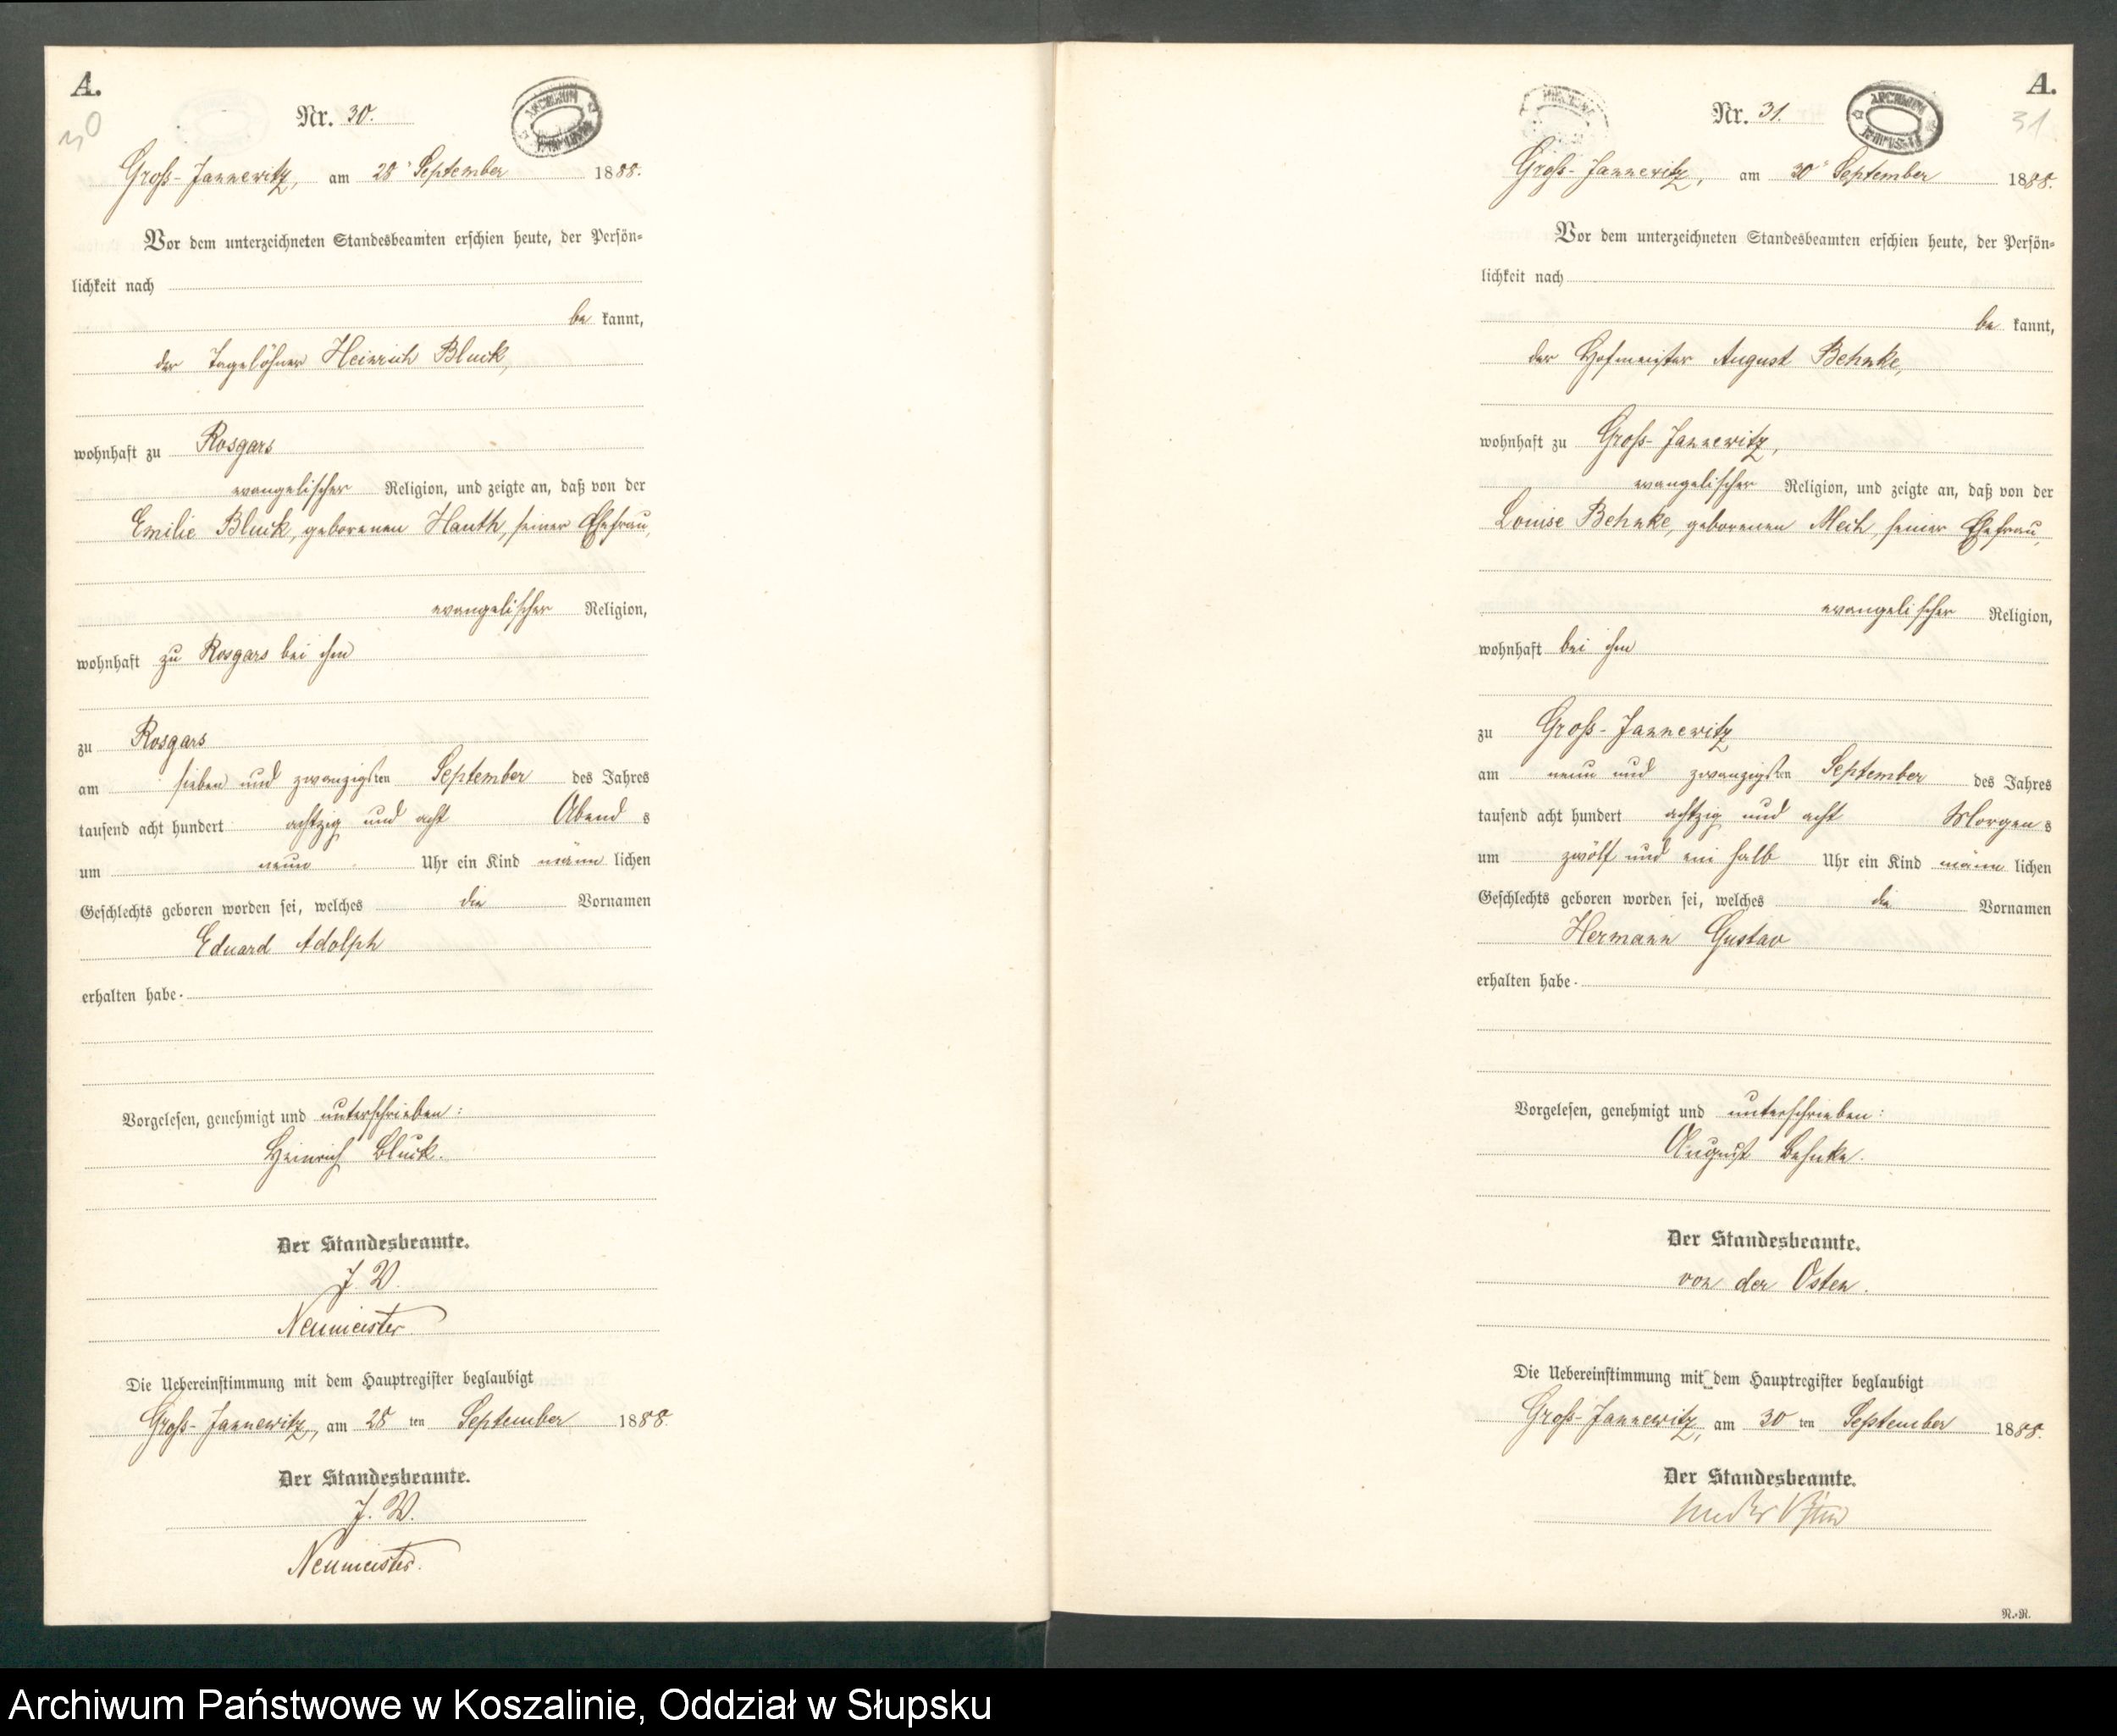 A.
30
Nr. 30.
ARCHIWUM
Groß-Jannewitz, am 28 September 1888.
Vor dem unterzeichneten Standesbeamten erschien heute, der Persön=
lichkeit nach
be kannt,
der Tagelöhner Heinrich Bluck,
wohnhaft zu Rosgars
evangelischer Religion, und zeigte an, daß von der
Emilie Bluck, geborenen Hauth, seiner Ehefrau,
evangelischer Religion,
wohnhaft zu Rosgars bei ihm
zu Rosgars
am sieben und zwanzigsten September des Jahres
tausend acht hundert achtzig und acht Abend s
um neun Uhr ein Kind männ lichen
Geschlechts geboren worden sei, welches die Vornamen
Eduard Adolph
erhalten habe.
Vorgelesen, genehmigt und unterschrieben:
Heinrich Bluck.
Der Standesbeamte.
J. V.
Neumeister.
Die Uebereinstimmung mit dem Hauptregister beglaubigt
Groß-Jannewitz, am 28 ten September 1888.
Der Standesbeamte.
J. V.
Neumeister.
A.
31
Nr. 31.
ARCHIWUM
Groß-Jannewitz, am 30 September 1888.
Vor dem unterzeichneten Standesbeamten erschien heute, der Persön=
lichkeit nach
be kannt,
der Hofmeister August Behnke,
wohnhaft zu Groß-Jannewitz,
evangelischer Religion, und zeigte an, daß von der
Louise Behnke, geborenen Mech, seiner Ehefrau,
evangelischer Religion,
wohnhaft bei ihm
zu Groß-Jannewitz
am neun und zwanzigsten September des Jahres
tausend acht hundert achtzig und acht Morgen s
um zwölf und ein halb Uhr ein Kind männ lichen
Geschlechts geboren worden sei, welches die Vornamen
Hermann Gustav
erhalten habe.
Vorgelesen, genehmigt und unterschrieben:
August Behnke.
Der Standesbeamte.
von der Osten.
Die Uebereinstimmung mit dem Hauptregister beglaubigt
Groß-Jannewitz, am 30 ten September 1888.
Der Standesbeamte.
von der Osten
N.=N.
Archiwum Państwowe w Koszalinie, Oddział w Słupsku